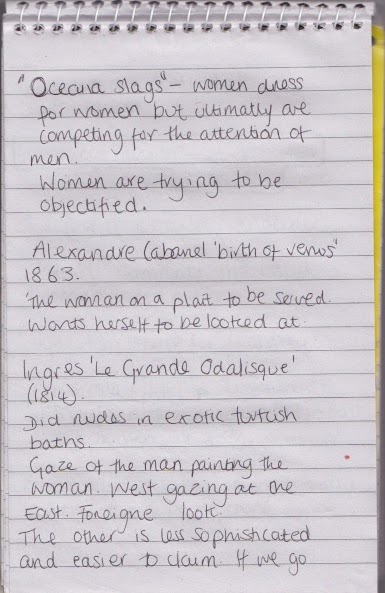 "Oceana slags" - women dress
for women but ultimatly are
competing for the attention of
men.
Women are trying to be
objectified.
Alexandre Cabanel 'birth of venus'
1863.
'The woman on a plait to be served.
Wants herself to be looked at.
Ingres 'Le Grande Odalisque'
(1814).
Did nudes in exotic turkish
baths.
Gaze of the man painting the
woman. West gazing at the
East. Foreigne look.
The other is less sophisticated
and easier to claim. If we go